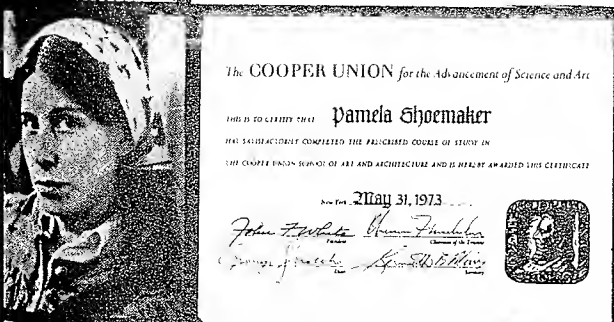 The COOPER UNION for the Advancement of Science and Art
THIS IS TO CERTIFY THAT Pamela Shoemaker
HAS SATISFACTORILY COMPLETED THE PRESCRIBED COURSE OF STUDY IN
THE COOPER UNION SCHOOL OF ART AND ARCHITECTURE AND IS HEREBY AWARDED THIS CERTIFICATE
New York May 31, 1973
John F. White
President Chairman of the Trustees
Secretary